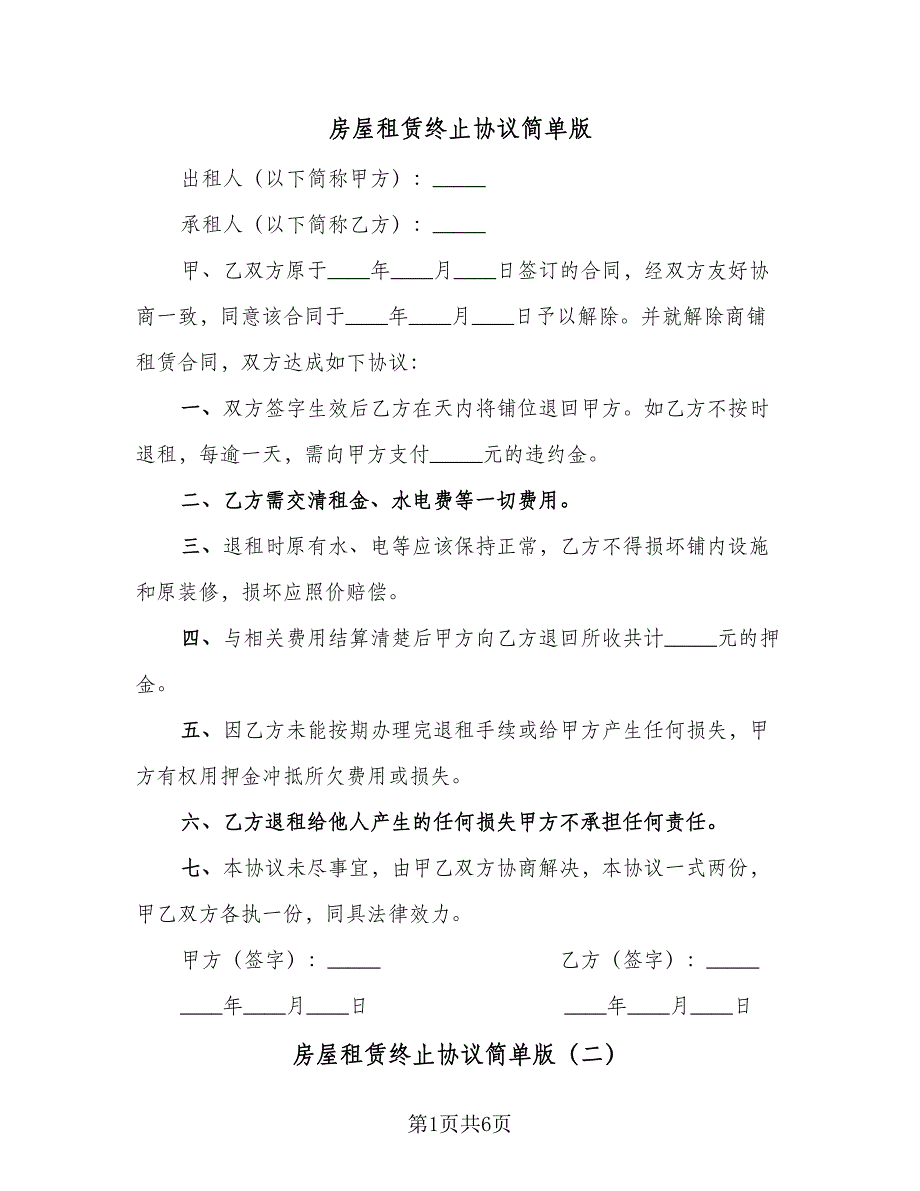 房屋租赁终止协议简单版
出租人（以下简称甲方）：_____
承租人（以下简称乙方）：_____
甲、乙双方原于____年____月____日签订的合同，经双方友好协
商一致，同意该合同于____年____月____日予以解除。并就解除商铺
租赁合同，双方达成如下协议：
一、双方签字生效后乙方在天内将铺位退回甲方。如乙方不按时
退租，每逾一天，需向甲方支付_____元的违约金。
二、乙方需交清租金、水电费等一切费用。
三、退租时原有水、电等应该保持正常，乙方不得损坏铺内设施
和原装修，损坏应照价赔偿。
四、与相关费用结算清楚后甲方向乙方退回所收共计_____元的押
金。
五、因乙方未能按期办理完退租手续或给甲方产生任何损失，甲
方有权用押金冲抵所欠费用或损失。
六、乙方退租给他人产生的任何损失甲方不承担任何责任。
七、本协议未尽事宜，由甲乙双方协商解决，本协议一式两份，
甲乙双方各执一份，同具法律效力。
甲方（签字）：_____ 乙方（签字）：_____
____年____月____日 ____年____月____日
房屋租赁终止协议简单版（二）
第1页共6页